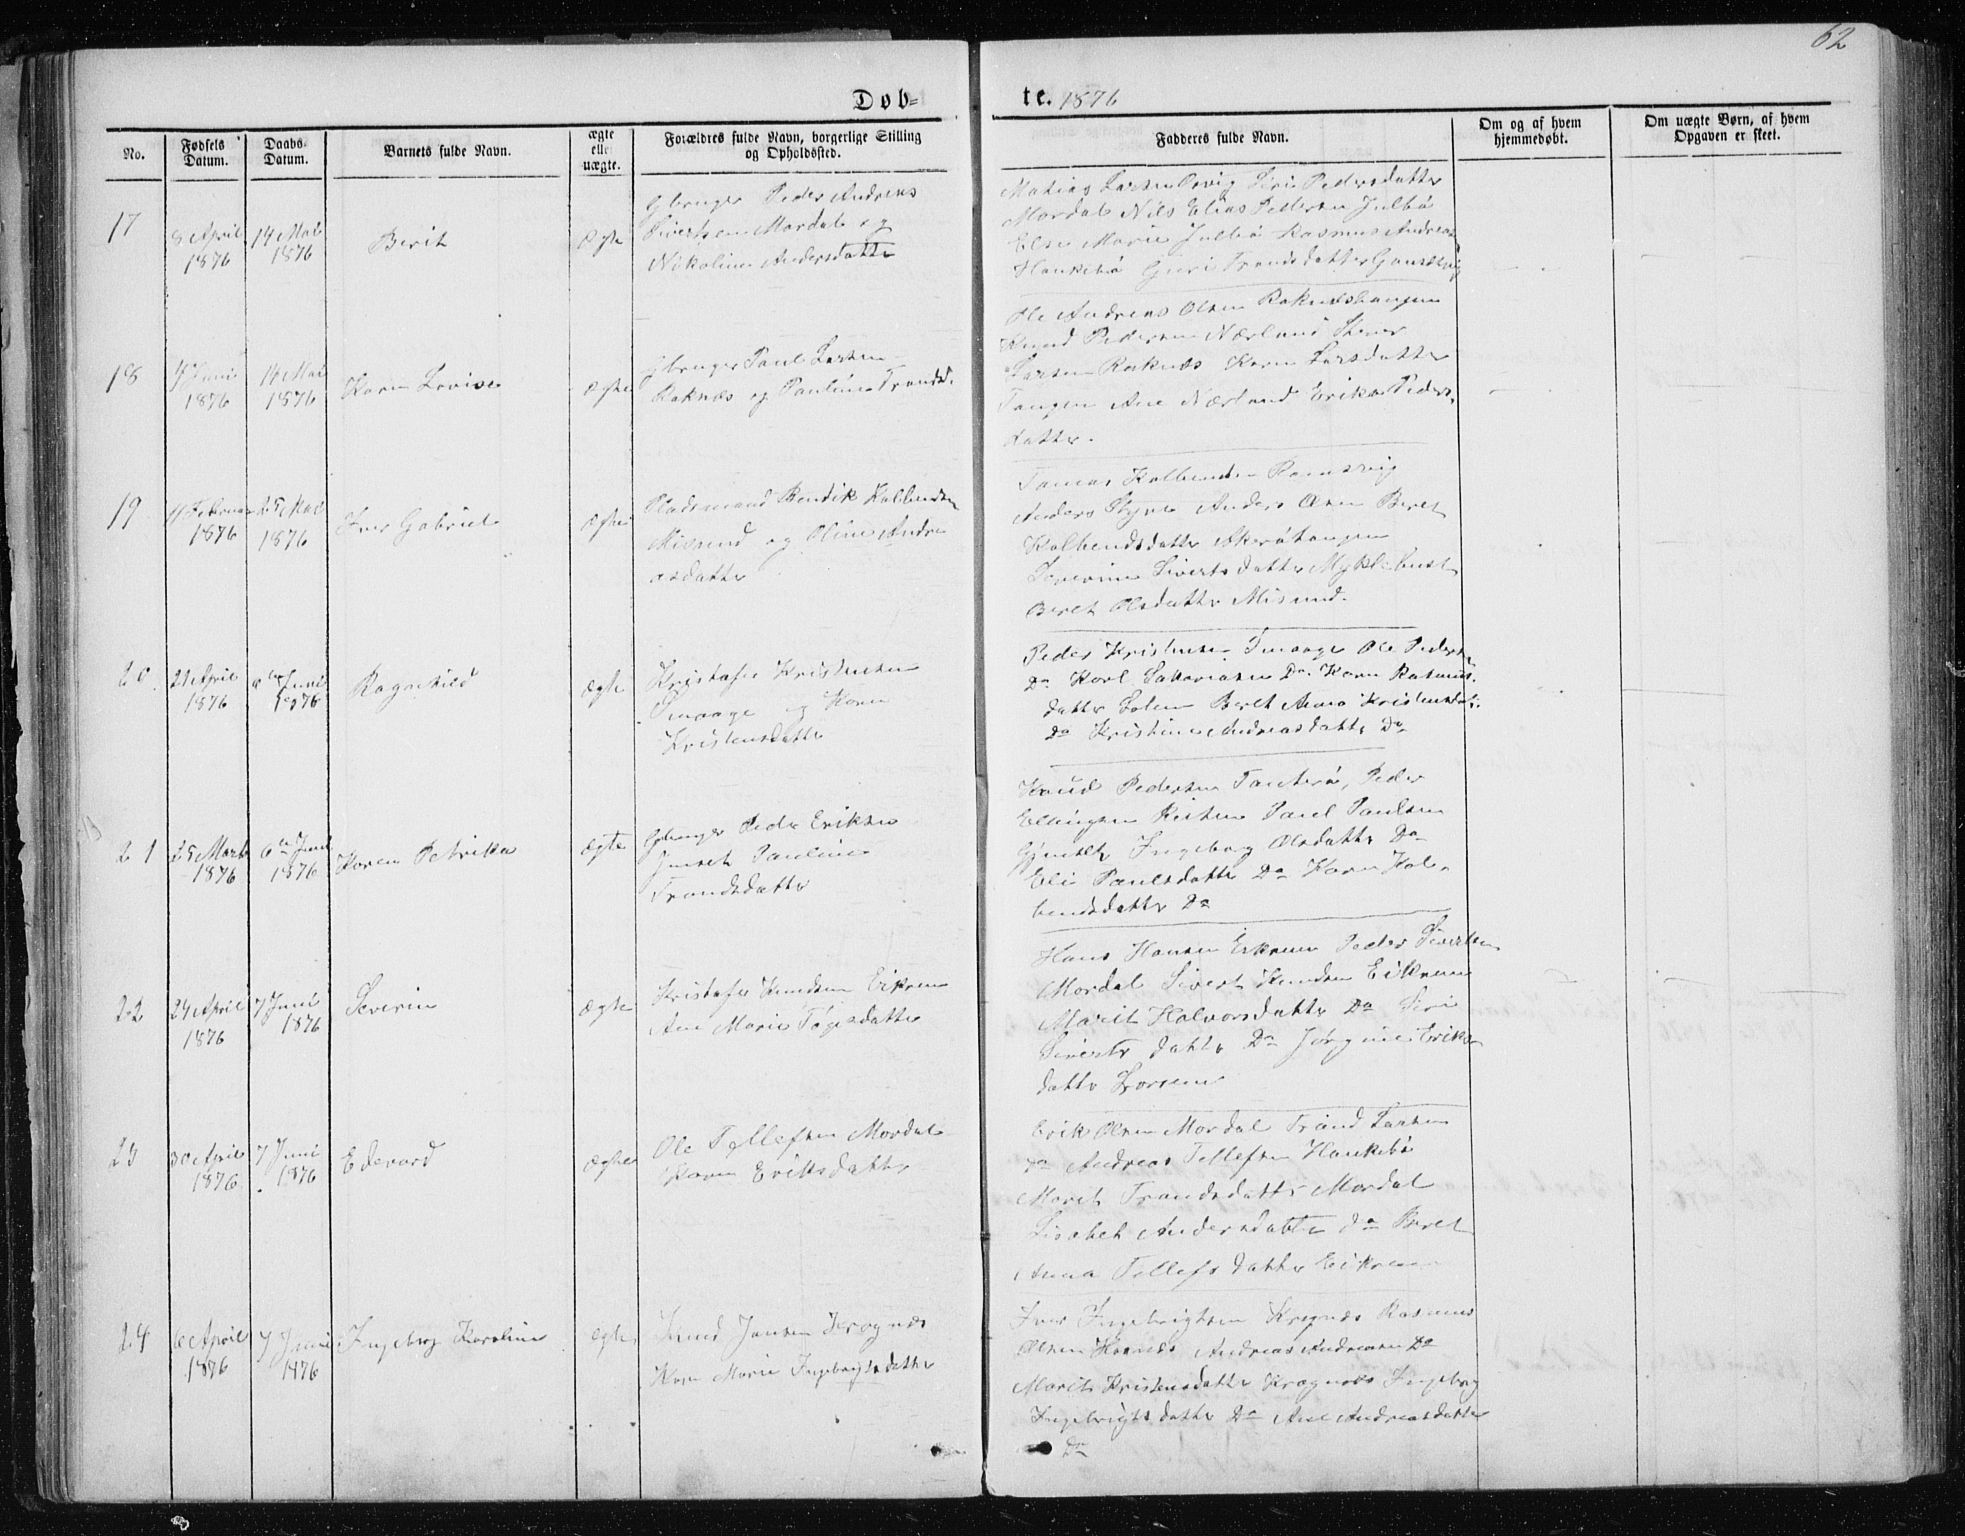 62
Døb- te. 1876
No.
Fødsels Datum.
Daabs- Datum.
Barnets fulde Navn.
ægte eller uægte.
Forældres fulde Navn, borgerlige Stilling og Opholdssted.
Fadderes fulde Navn.
Om og af hvem hjemmedøbt.
Om uægte Børn, af hvem Opgaven er skeet.
17
8 April 1876
14 Mai 1876
Berit
Ægte
Gbruger Peder Andreas
Sivertsen Mordal og
Nikoline Andersdatter
Matias Larsen Orvig Siri Pedersdatter
Mordal Nils Elias Pedersen Julbø
Else Marie Julbø Rasmus Andreas
Haukebø Guri Trondsdatter
18
14 Mai 1876
Karen Lovise
Ægte
Gbruger Paul Larsen
Raknæs og Pauline Trondsd.
Ole Andreas Olsen Raknæshaugen
Knud Pedersen Nærland
Larsen Raknæs Karen Larsdatter
Tangen Ane Nærland Erika Peders
datter.
19
11 Februar 1876
25 Mai 1876
Iver Gabriel
Ægte
Pladsmand Bendik Kolbendsen
Misund og Oline Andre
asdatter
Tomas Kolbensen
Anders Anders Olsen Beret
Kolbendsdatter Akerøtangen
Severine Sivertsdatter Myklebust
Beret Olsdatter Misund.
20
21 April 1876
6te Juni 1876
Ragnhild
Ægte
Kristofer Kristensen
Smaage og Karen
Kristensdatter
Peder Kristensen Smaage Ole Pedersen
Do Karl Sakariasen Do. Karen Rasmus-
datter Beret Anna Kristensdat.
Do Kristine Andreasdatter Do
21
25 Marts 1876
6te Juni 1876
Karen Petrika
Ægte
Gbruger Peder Eriksen
Pauline
Trondsdatter
Knud Pedersen Tautерø, Peder
Ellingsen Paul Paulsen
Ingeborg Olsdatter Do
Eli Paulsdatter Do Karen Kol-
bendsdatter Do
22
24 April 1876
7 Juni 1876
Severin
Ægte
Kristofer Knudsen Eikrem
Ane Marie
Hans Hansen Eikrem Peder Sivertsen
Mordal Sivert Knudsen Eikrem
Marit Halvorsdatter Do Siri
Sivertsdatter Do Jørgine Eriks
datter
23
30 April 1876
7 Juni 1876
Edevard
Ægte
Ole Tellefsen Mordal
Karen Eriksdatter
Erik Olsen Mordal Trond Larsen
do Andreas Tellefsen Haukebø
Marit Trondsdatter Mordal
Lisabet Andersdatter do Beret
Anna Tellefsdatter Eikrem
24
6 April 1876
7 Juni 1876
Ingeborg Karoline
Ægte
Knud Jansen Krognæs
Karen Marie Ingebrigtsdatter
Iver Ingebrigtsen Krognæs Rasmus
Olsen Andreas Andreasen Do
Marit Kristensdatter Krognæs Ingeborg
Ingebrigtsdatter Do Ane Andreasdatter
Do